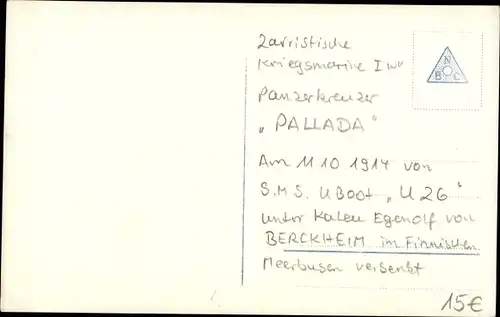 Zarristische
Kriegsmarine I WK
Panzerkreuzer
"PALLADA"
Am 11 10 1914 von
S.M.S. U Boot "U 26"
unter Kaleu Egenolf von
BERCKHEIM im Finnischen
Meerbusen versenkt
N
B C
15€